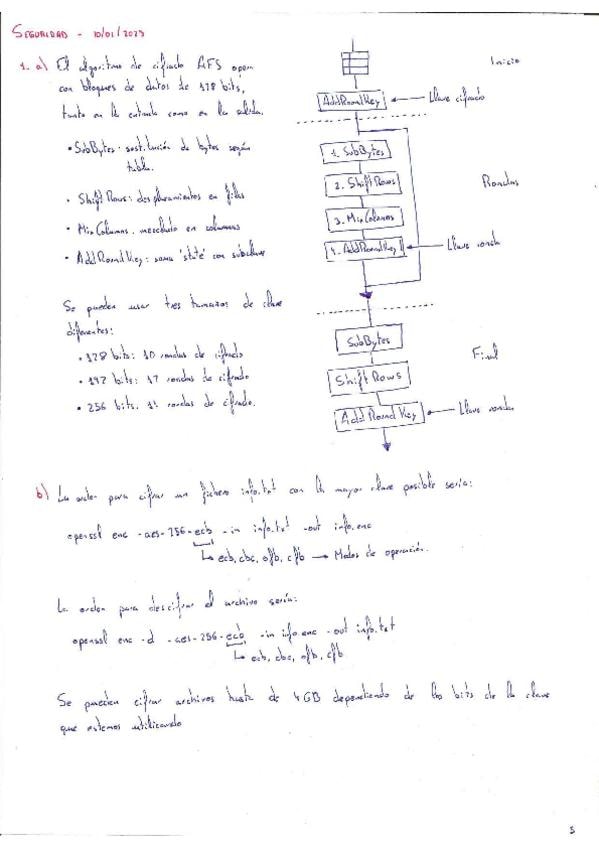 SEGURIDAD - 10/01/2023
1. a) El algoritmo de cifrado AES opera
con bloques de datos de 128 bits,
tanto en la entrada como en la salida.
• SubBytes: sustitución de bytes según
tabla.
• ShiftRows: desplazamientos en filas
• MixColumns: mezclado en columnas
• AddRoundKey: suma 'state' con subclave
Se pueden usar tres tamaños de clave
diferentes:
• 128 bits: 10 rondas de cifrado
• 192 bits: 12 rondas de cifrado
• 256 bits: 14 rondas de cifrado.
Inicio
AddRoundKey ← Llave cifrado
1. SubBytes
2. ShiftRows
Rondas
3. MixColumns
4. AddRoundKey ← Llave ronda
SubBytes
Final
ShiftRows
AddRoundKey ← Llave ronda
b) La orden para cifrar un fichero info.txt con la mayor clave posible sería:
openssl enc -aes-256-ecb -in info.txt -out info.enc
↳ ecb, cbc, ofb, cfb → Modos de operación.
La orden para descifrar el archivo sería:
openssl enc -d -aes-256-ecb -in info.enc -out info.txt
↳ ecb, cbc, ofb, cfb
Se pueden cifrar archivos hasta de 4GB dependiendo de los bits de la clave
que estemos utilizando
5